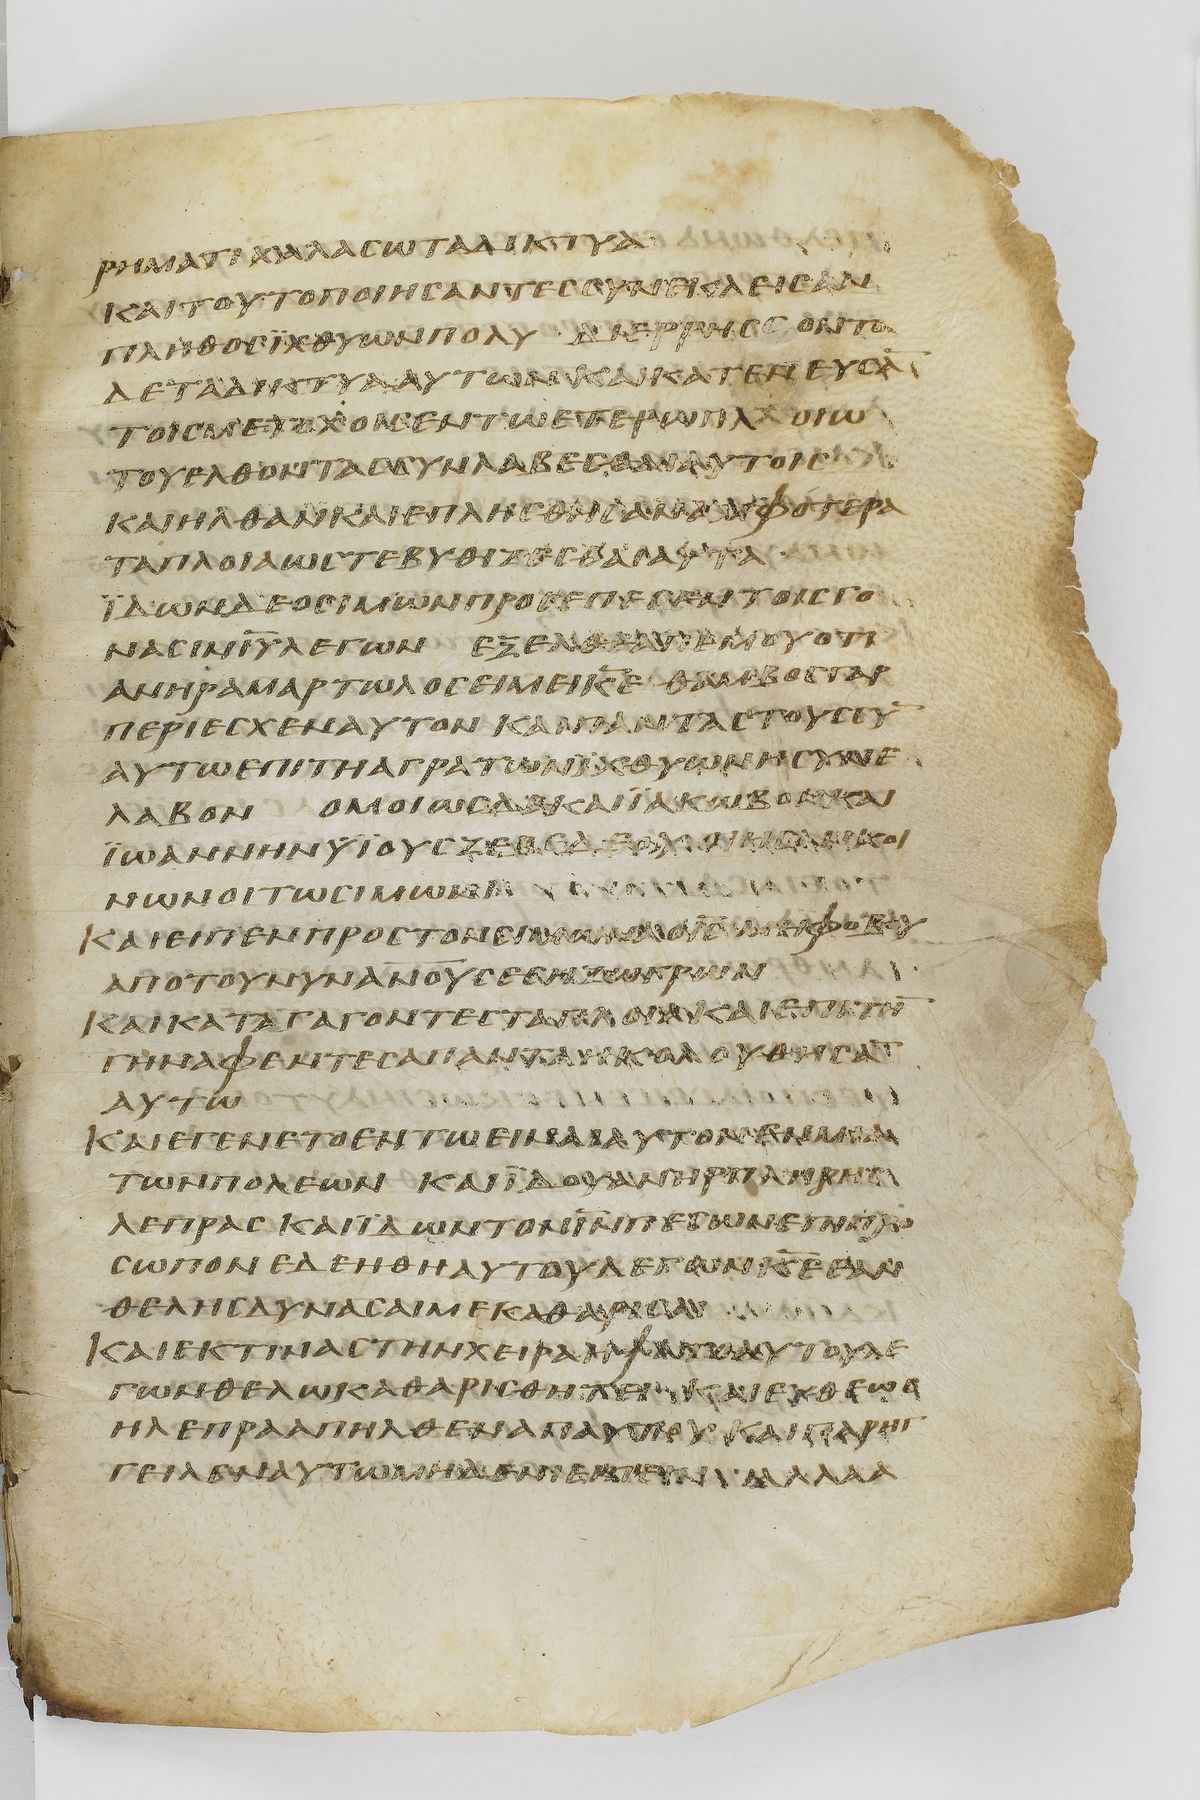 ρηματι χαλασω τα δικτυα
και τουτο ποιησαντες συνεκλεισαν
πληθος ϊχθυων πολυ διερρησσοντο
δε τα δικτυα αυτων και κατενευσα̅
τοις μετοχοις εν τω ετερω πλοιω
του ελθοντας συνλαβεσθαι αυτοις
και ηλθαν και επλησθησαν αμφοτερα
τα πλοια ωστε βυθιζεσθαι αυτα
ϊδων δε ο σιμων προσεπεσεν τοις γο
νασιν ι̅υ̅ λεγων εξελθε απ εμου οτι
ανηρ αμαρτωλος ειμει κ̅ε̅ θαμβος γαρ
περιεσχεν αυτον και παντας τους συ̅
αυτω επι τη αγρα των ϊχθυων η συνε
λαβον ομοιως δε και ϊακωβον και
ϊωαννην υϊους ζεβεδεου οι ησαν κοι
νωνοι τω σιμωνι
και ειπεν προς τον σιμωνα ο ι̅ς̅ μη φοβου
απο του νυν α̅ν̅ο̅υ̅ς̅ εση ζωγρων
και καταγαγοντες τα πλοια επι τη̅
γην αφεντες απαντα ηκολουθησα̅
αυτω
και εγενετο εν τω ειναι αυτον εν μια
των πολεων και ϊδου ανηρ πληρης
λεπρας και ϊδων τον ι̅ν̅ πεσων επι προ
σωπον εδεηθη αυτου λεγων κ̅ε̅ εαν
θελης δυνασαι με καθαρισαι
και εκτινας την χειραν ηψατο αυτου λε
γων θελω καθαρισθητι και ευθεως
η λεπρα απηλθεν απ αυτου και παρηγ
γειλεν αυτω μηδενι ειπειν αλλα